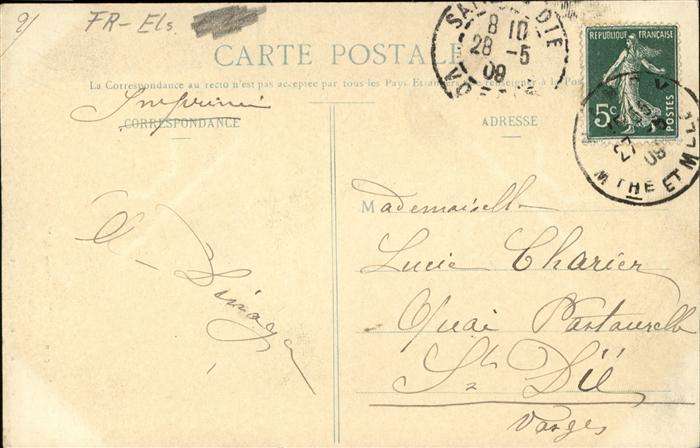 FR-Els.
CARTE POSTALE
La Correspondance au recto n'est pas acceptée par tous les Pays
Imprimé
CORRESPONDANCE
ADRESSE
8 10
28 -5
09
REPUBLIQUE FRANÇAISE
5c
POSTES
27
09
MTHE ET M
Mademoiselle
Lucie Charier
Quai Pastourelle
St Dié
Vosges